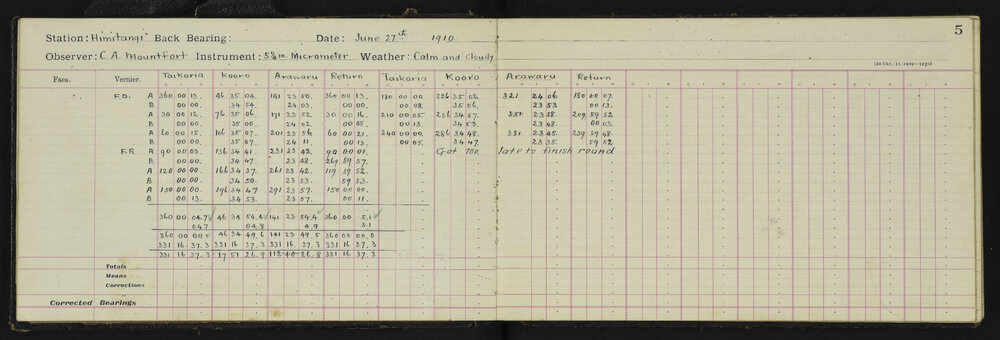 5
Station: Himitangi Back Bearing: Date: June 27th 1910
Observer: C A Mountfort Instrument: 5¼ in. Micrometer Weather: Calm and Cloudy
Face. Vernier. Taikoria Kooro Arawaru Return Taikoria Kooro Arawaru Return
F.D. A 360 00 13. 46 35 04. 141 23 50. 360 00 13. 180 00 00 226 35 02. 321 24 06 180 00 07.
B 00 00. 34 54. 24 03. 00 00. 00 08. 35 06. 23 53 00 13.
A 30 00 12. 76 35 06. 171 23 52. 30 00 16. 210 00 05 256 34 57. 351 23 58. 209 59 52
B 00 00. 35 00. 24 02. 00 05. 00 13 34 53. 23 48. 00 03.
A 60 00 15. 106 35 07. 201 23 56. 60 00 21. 240 00 00. 286 34 48. 381 23 45. 239 59 48.
B 00 00. 35 07. 24 11. 00 13. 00 05. 34 47 23 35. 59 52
F.R A 90 00 03. 136 34 41. 231 23 42. 90 00 01. Got too late to finish round
B 00 00. 34 47. 23 48. 269 59 57.
A 120 00 00. 166 34 37. 261 23 42. 119 59 52.
B 00 00. 34 50. 23 53. 59 53.
A 150 00 00. 196 34 47 291 23 57. 150 00 00.
B 00 13. 34 53. 23 57. 00 11.
360 00 04.7 46 34 54.4 141 23 54.4 360 00 5.1
04.7 04.8 4.9 5.1
360 00 00.0 46 34 49.6 141 23 49.5 360 00 00.0
331 16 37.3 331 16 37.3 331 16 37.3 331 16 37.3
331 16 37.3 17 51 26.9 112 40 26.8 331 16 37.3
Totals
Means
Corrections
Corrected Bearings